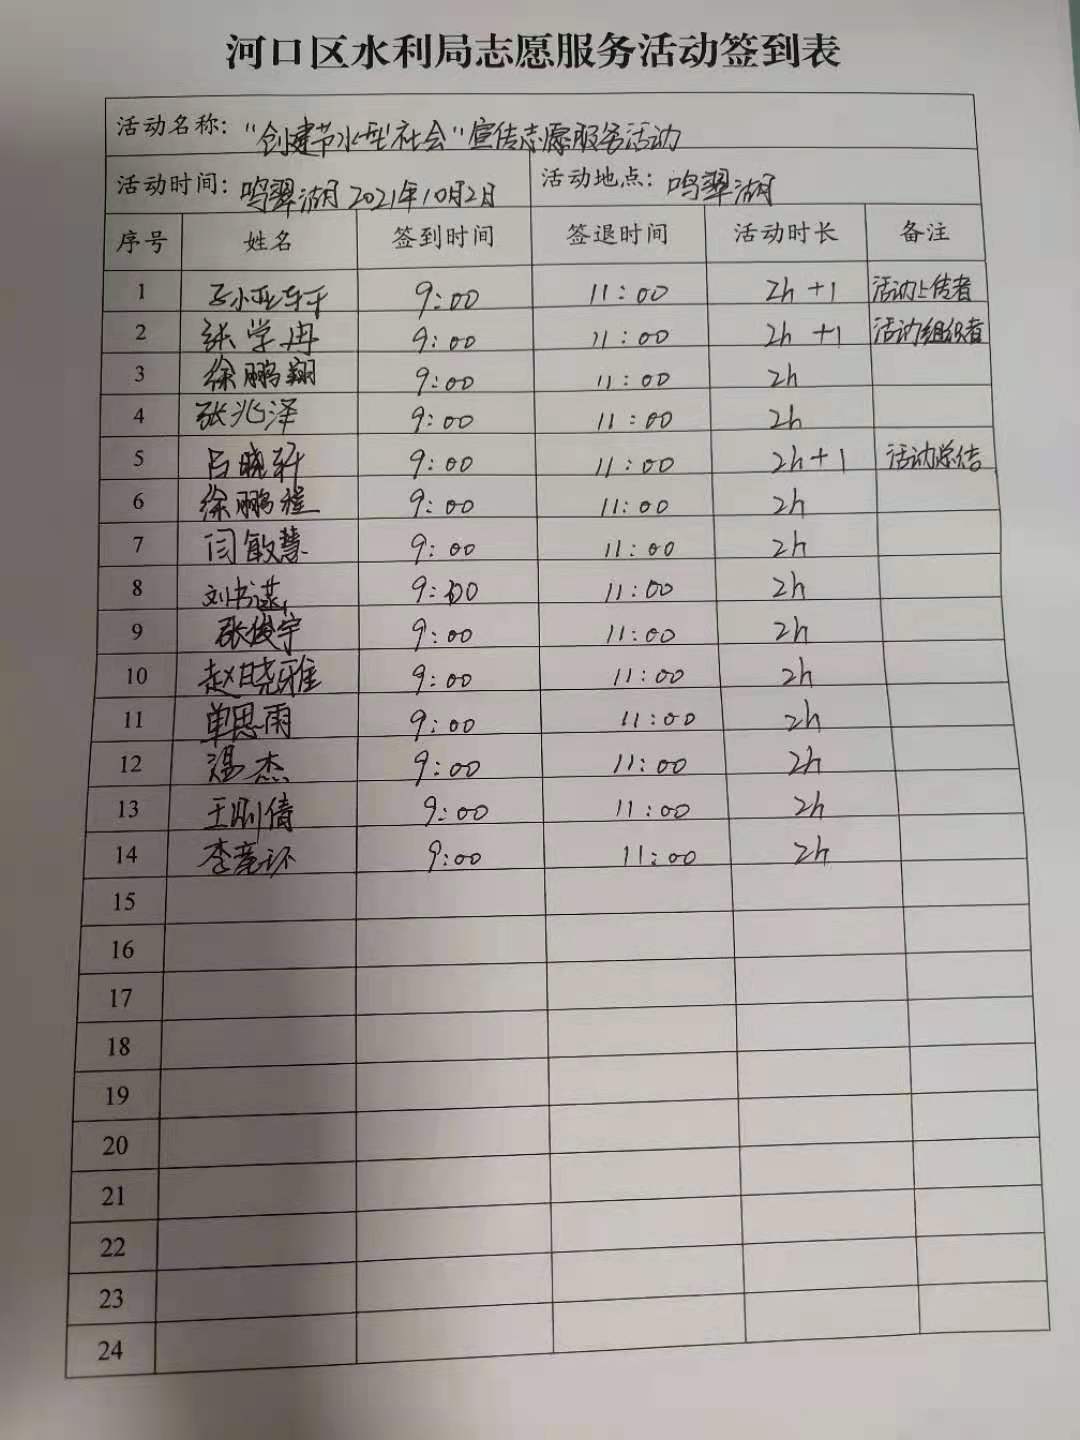 河口区水利局志愿服务活动签到表
活动名称：“创建节水型社会”宣传志愿服务活动
活动时间：鸣翠湖 2021年10月2日 活动地点：鸣翠湖
序号 姓名 签到时间 签退时间 活动时长 备注
1 9:00 11:00 2h +1 活动上传者
2 张学冉 9:00 11:00 2h +1 活动组织者
3 徐鹏翔 9:00 11:00 2h
4 张兆泽 9:00 11:00 2h
5 吕晓轩 9:00 11:00 2h+1 活动总结
6 徐鹏程 9:00 11:00 2h
7 闫敏慧 9:00 11:00 2h
8 刘书 9:00 11:00 2h
9 张俊宇 9:00 11:00 2h
10 赵晓雅 9:00 11:00 2h
11 单思雨 9:00 11:00 2h
12 温杰 9:00 11:00 2h
13 王刚倩 9:00 11:00 2h
14 李竞环 9:00 11:00 2h
15
16
17
18
19
20
21
22
23
24